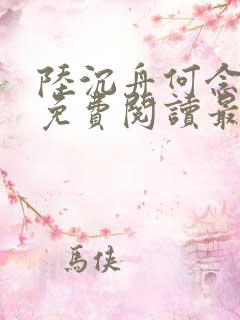 陸沉舟何念
免費閱讀最
馬俠